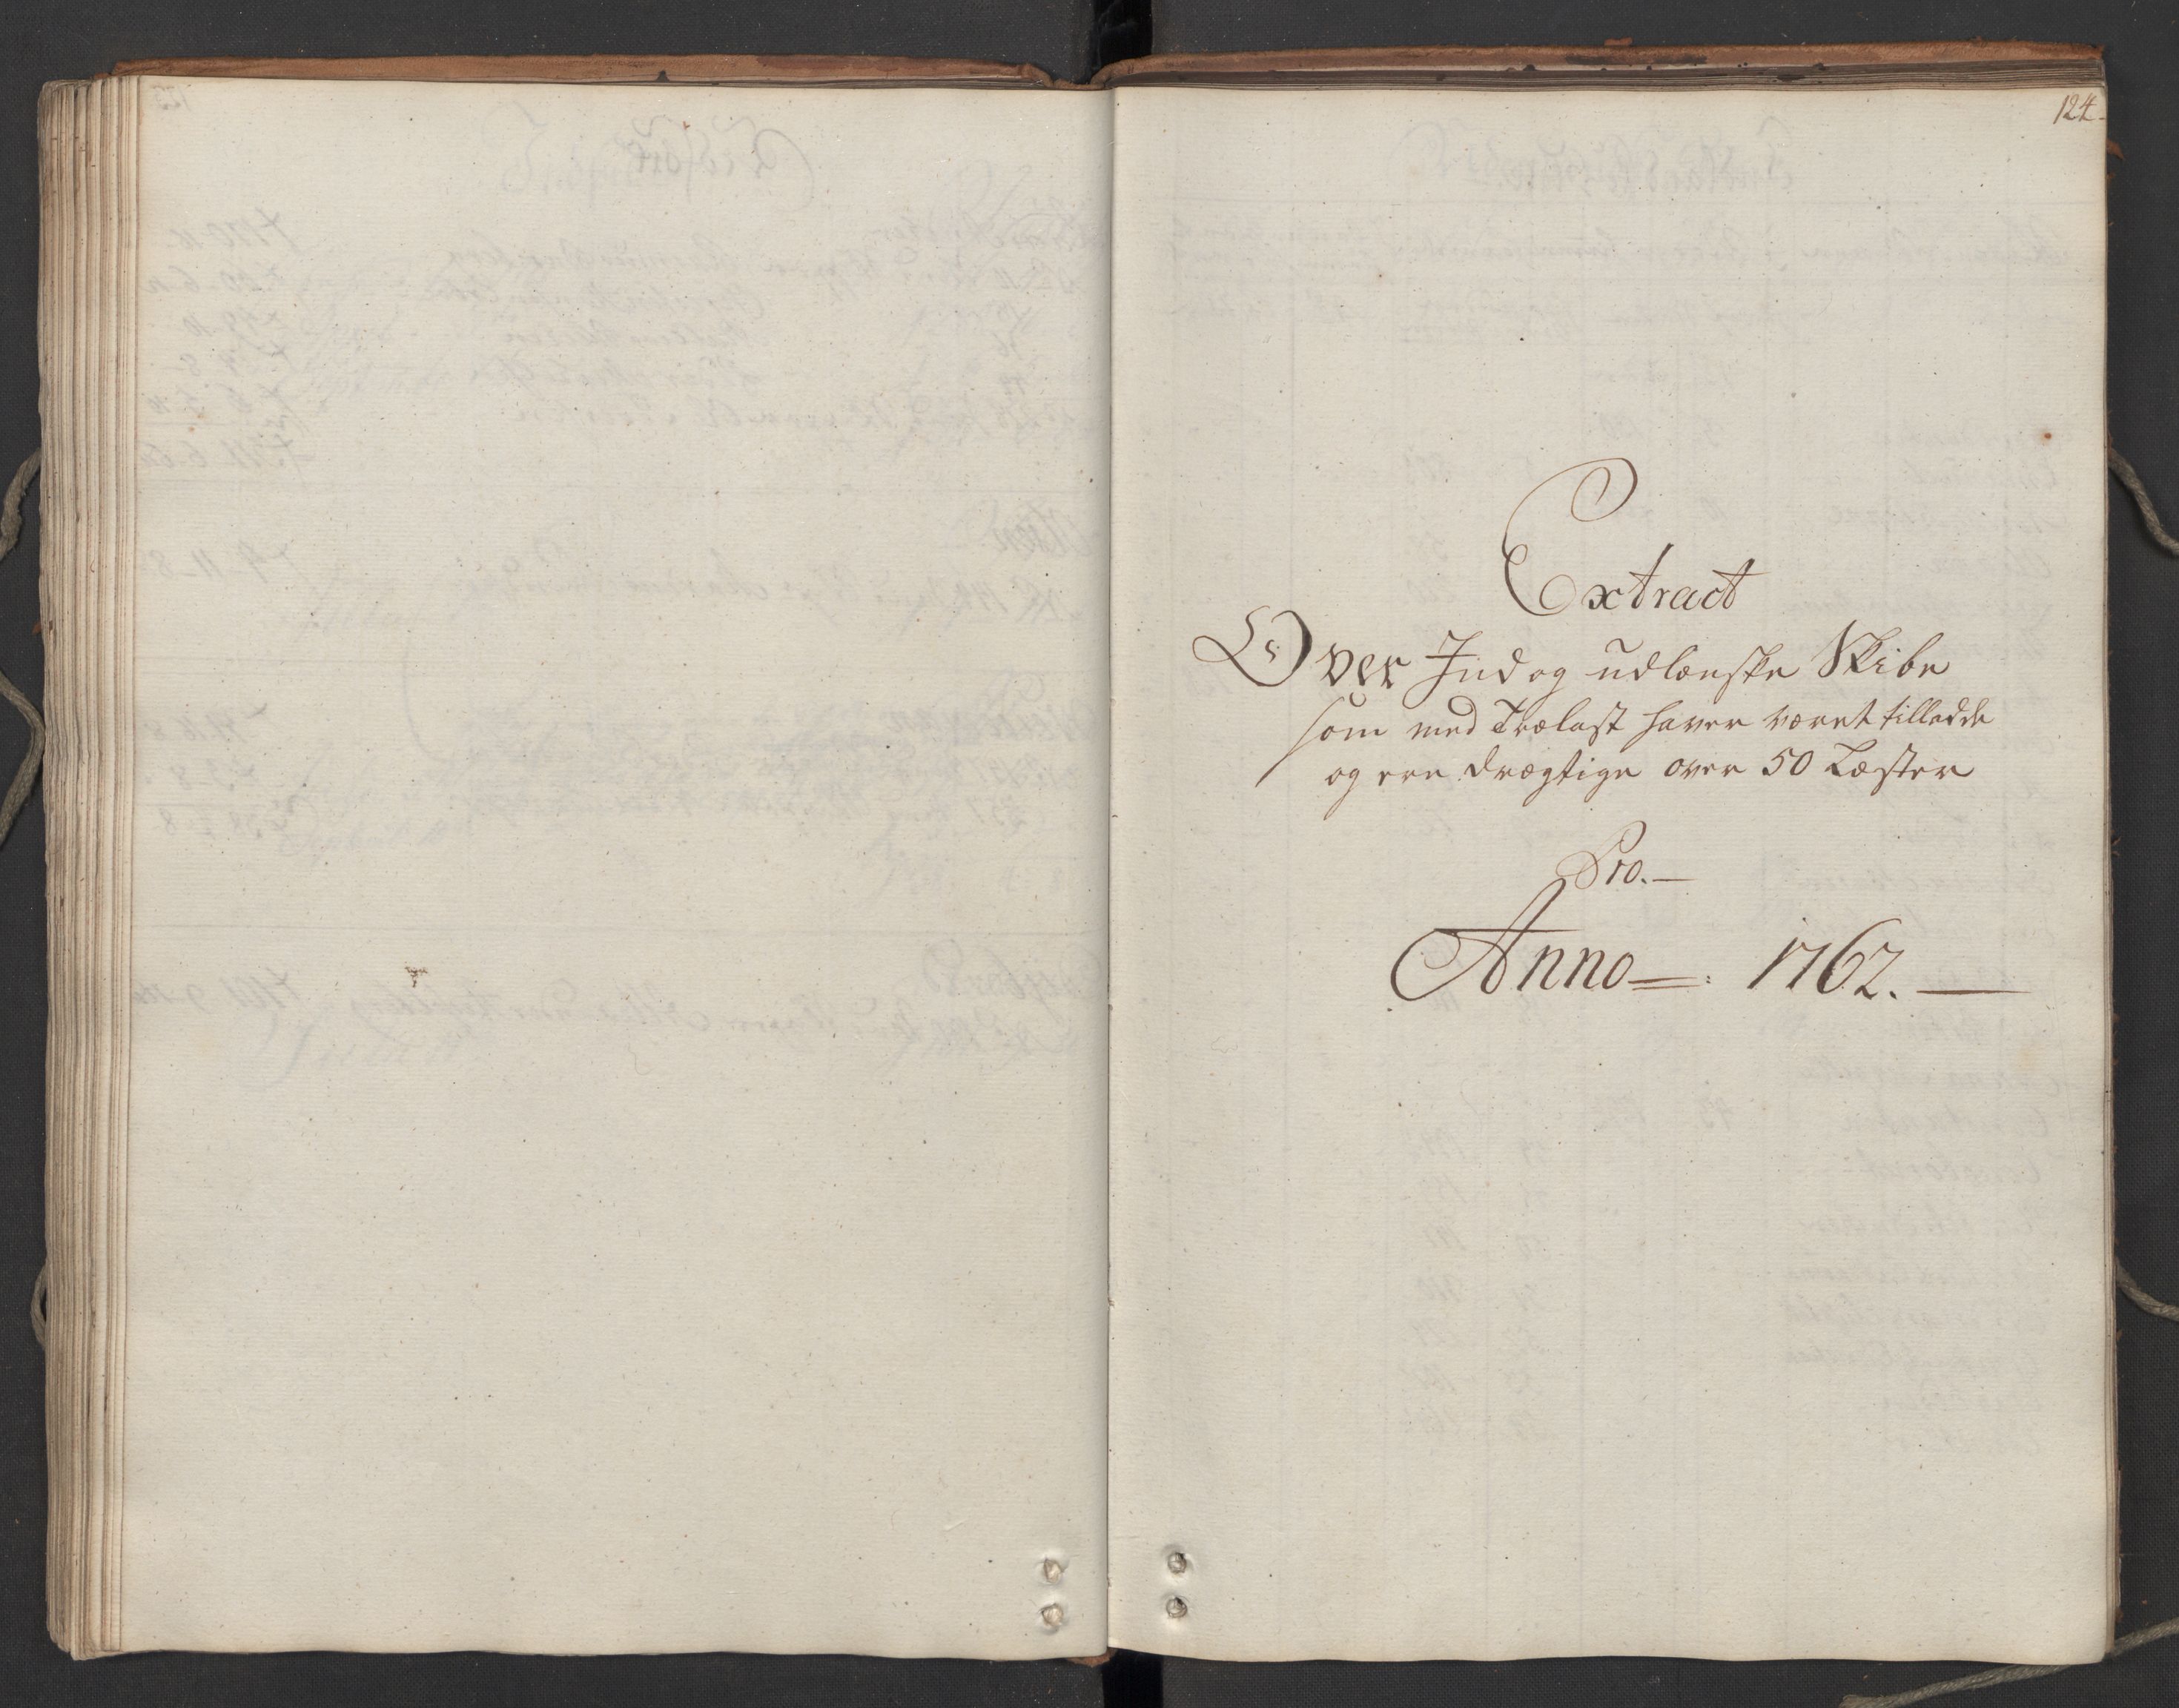 124.
Extract
Over Ind og udlænske Skibe
som med Trælast haver været tilladde
og ere drægtige over 50 Læster
Pro.—
Anno 1762.—